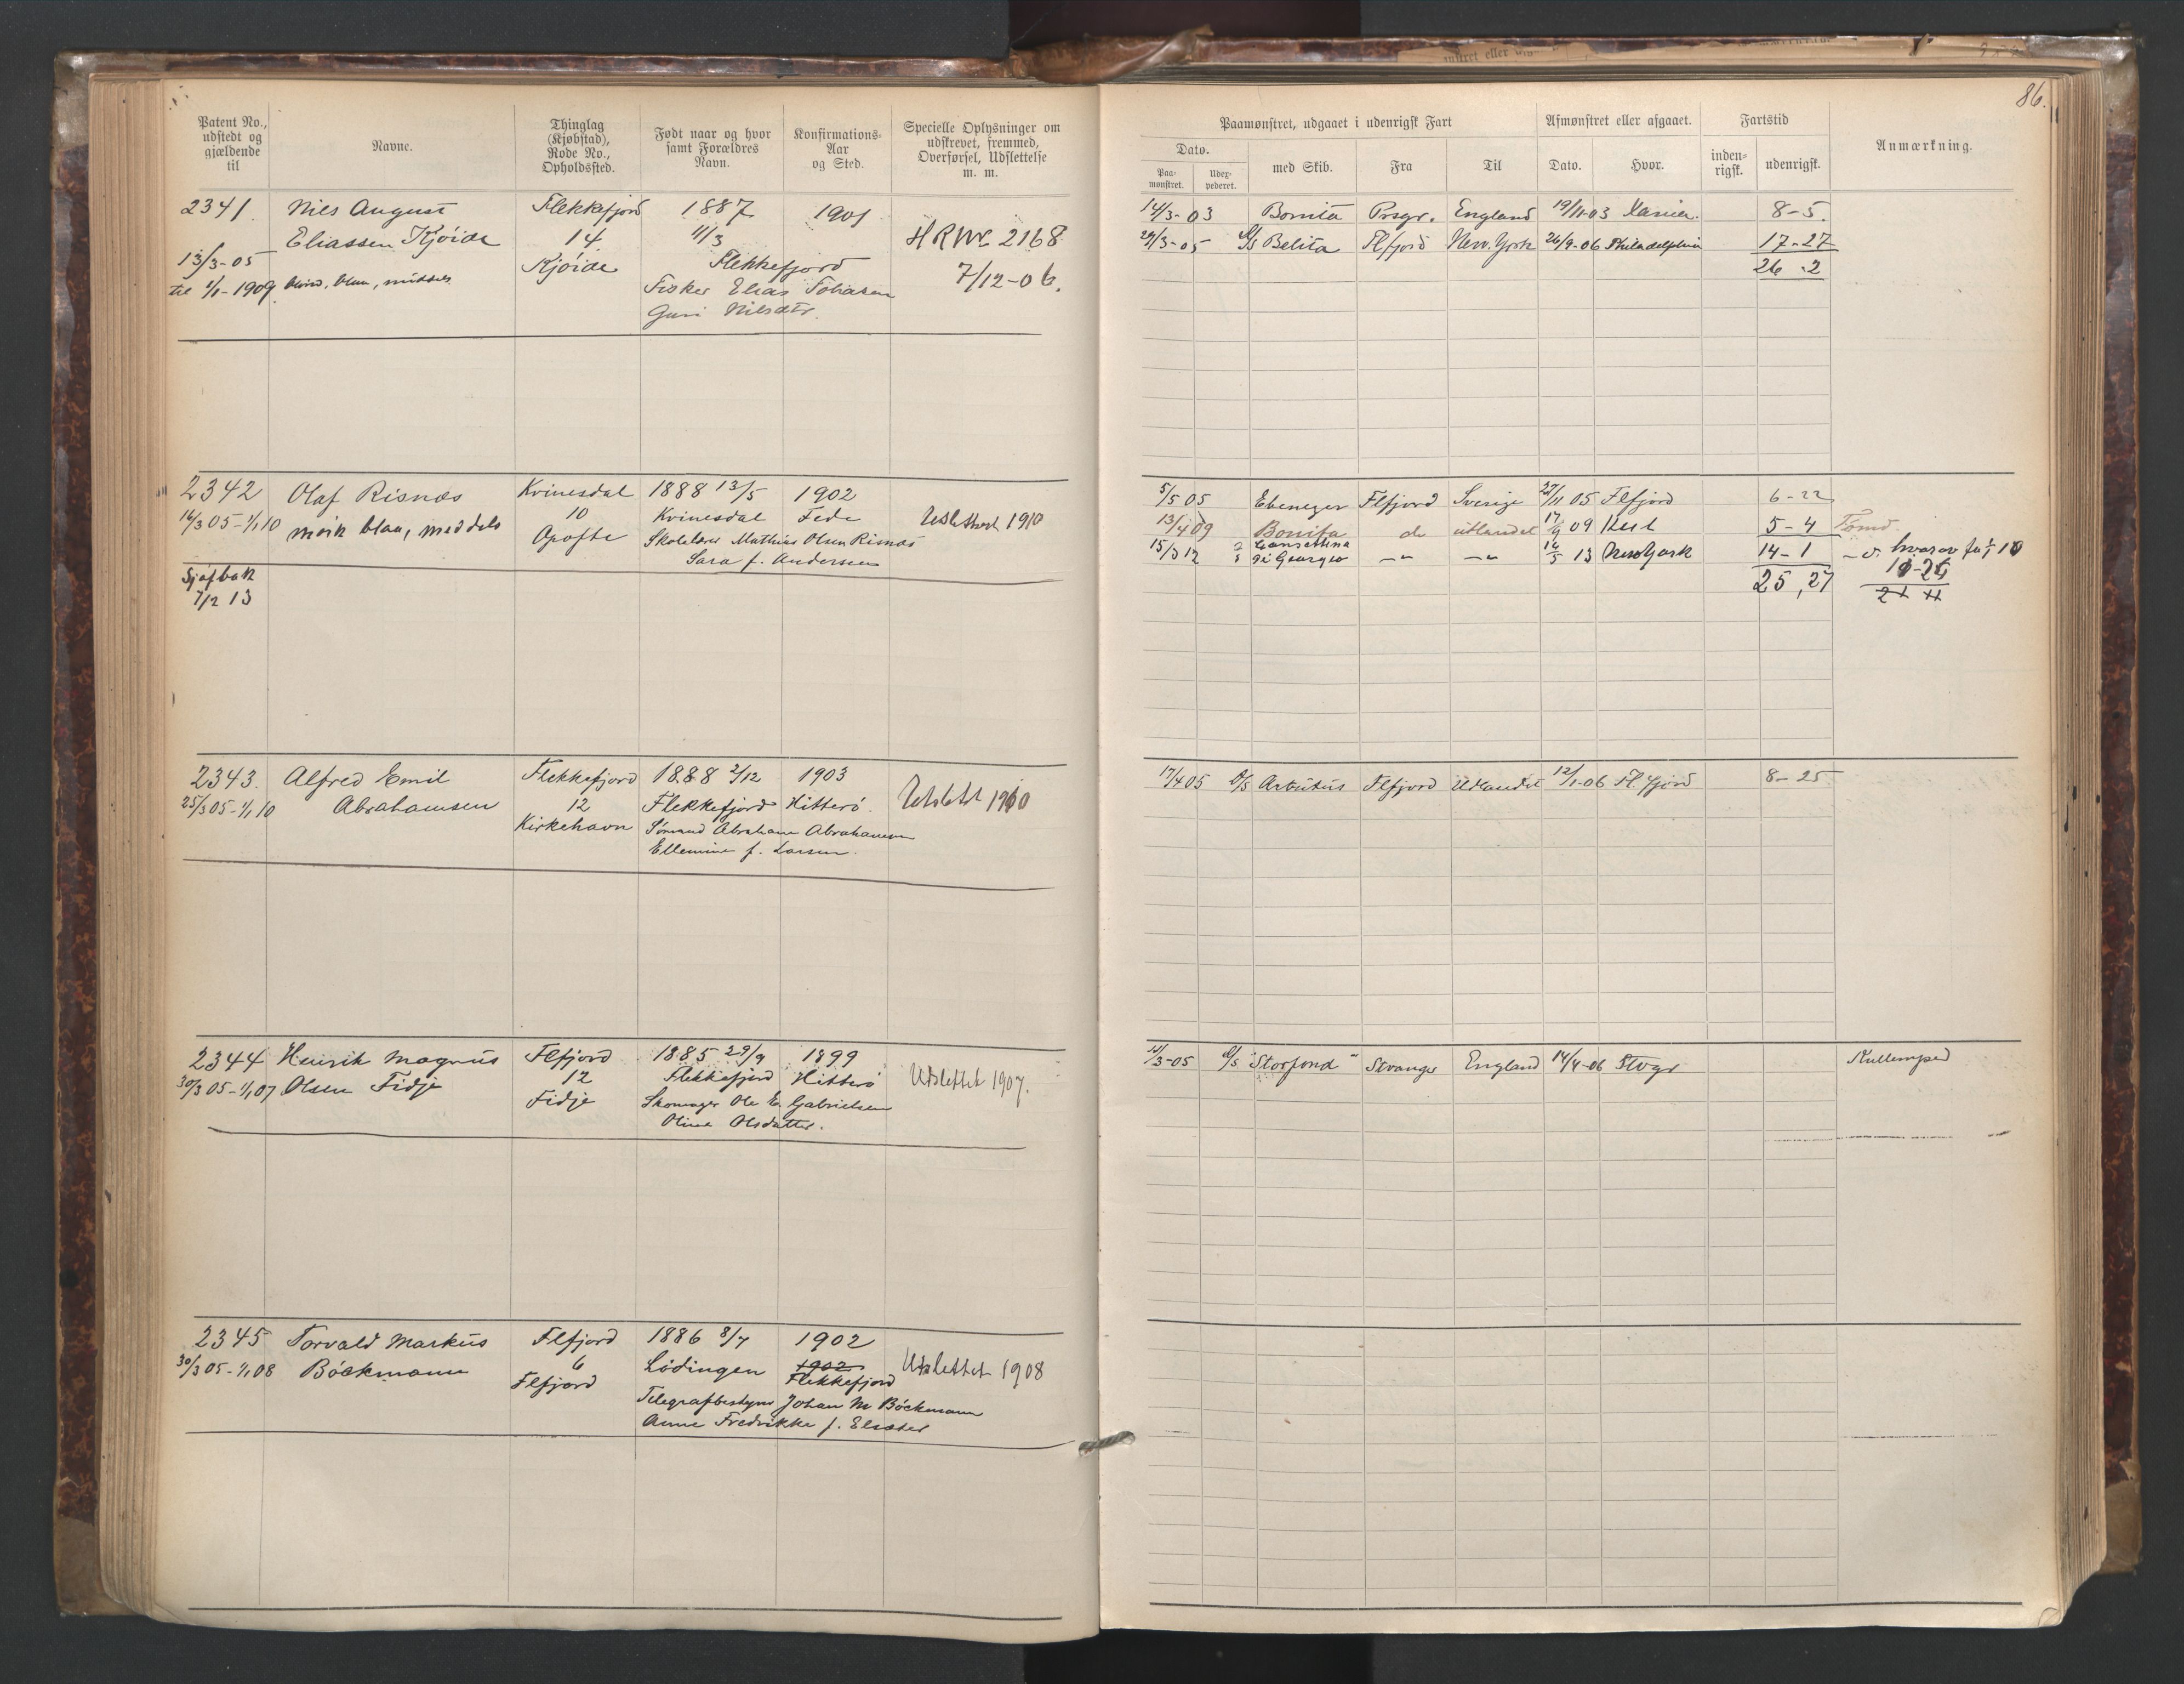 86.
Patent No., udstedt og gjældende til
Navne.
Thinglag (Kjøbstad), Rode No., Opholdssted.
Født naar og hvor samt Forældres Navn.
Konfirmations-Aar og Sted.
Specielle Oplysninger om udskrevet, fremmed, Overførsel, Udslettelse m. m.
Paamønstret, udgaaet i udenrigsk Fart
Afmønstret eller afgaaet.
Fartstid
Anmærkning.
Dato.
Paa-mønstret.
Udex-pederet.
med Skib.
Fra
Til
Dato.
Hvor.
inden-rigsk.
udenrigsk.
2341. Nils August Flekkefjord 1887 1901
Eliassen Kjøide 14. 11/3 HRM 2168
13/3-05 Kjøide Flekkefjord 7/12-06.
til 1/1-1909 blond, blaa, middels Fisker Elias Tobiasen
Guri Nilsdtr.
14/3-03 Bonita Prsgr. England 19/11-03 8-5.
29/3-05 S/S Belita Flfjord New. York 26/9-06 Philadelphia 17-27
26-2
2342 Olaf Risnæs Kvinesdal 1888 13/5 1902
16/3 05-1/1 10 mørk blaa, meddels 10 Kvinesdal Fede Udslettet 1910
Apofte Skolelærer Mathias Olsen Risnæs
Sara f. Andersen
Sjøfbok
7/2 13
5/5 05 Ebeneger Flfjord Sverige 27/11 05 Flfjord 6-22
13/4 09 Bonita do utlandet 17/9 09 5-4 Tømd.
15/3 12 -"- -"- 16/5 13 New York 14-1 hvorav før 1/1 10
25,27
2343. Alfred Emil Flekkefjord 1888 2/12 1903
25/3 05-1/1 10 Abrahamsen 12 Flekkefjord Hitterø. Udslettet 1910
Kirkehavn Sømand Abraham Abrahamsen
Ellemine f. Larsen.
17/4 05 D/S Arbutus Flfjord Udlandet 12/1-06 Fl.fjord 8-25
2344 Henrik Magnus Flfjord 1885 29/9 1899
30/3 05-1/1 07 Olsen Fidje 12 Flekkefjord Hitterø Udslettet 1907.
Fidje Skomager Ole E. Gabrielsen
Oline Olsdatter.
3-05 D/S "Storfond" Stvanger England 14/4-06 Stvgr Kullemped
2345 Torvald Markus Flfjord 1886 8/7 1902
30/3 05-1/1 08 Böckmann 6 Lødingen 1902 Udslettet 1908
Flfjord Flekkefjord
Telegrafbestyrer Johan M Böckmann
Anne Fredrikke f. Elsæter